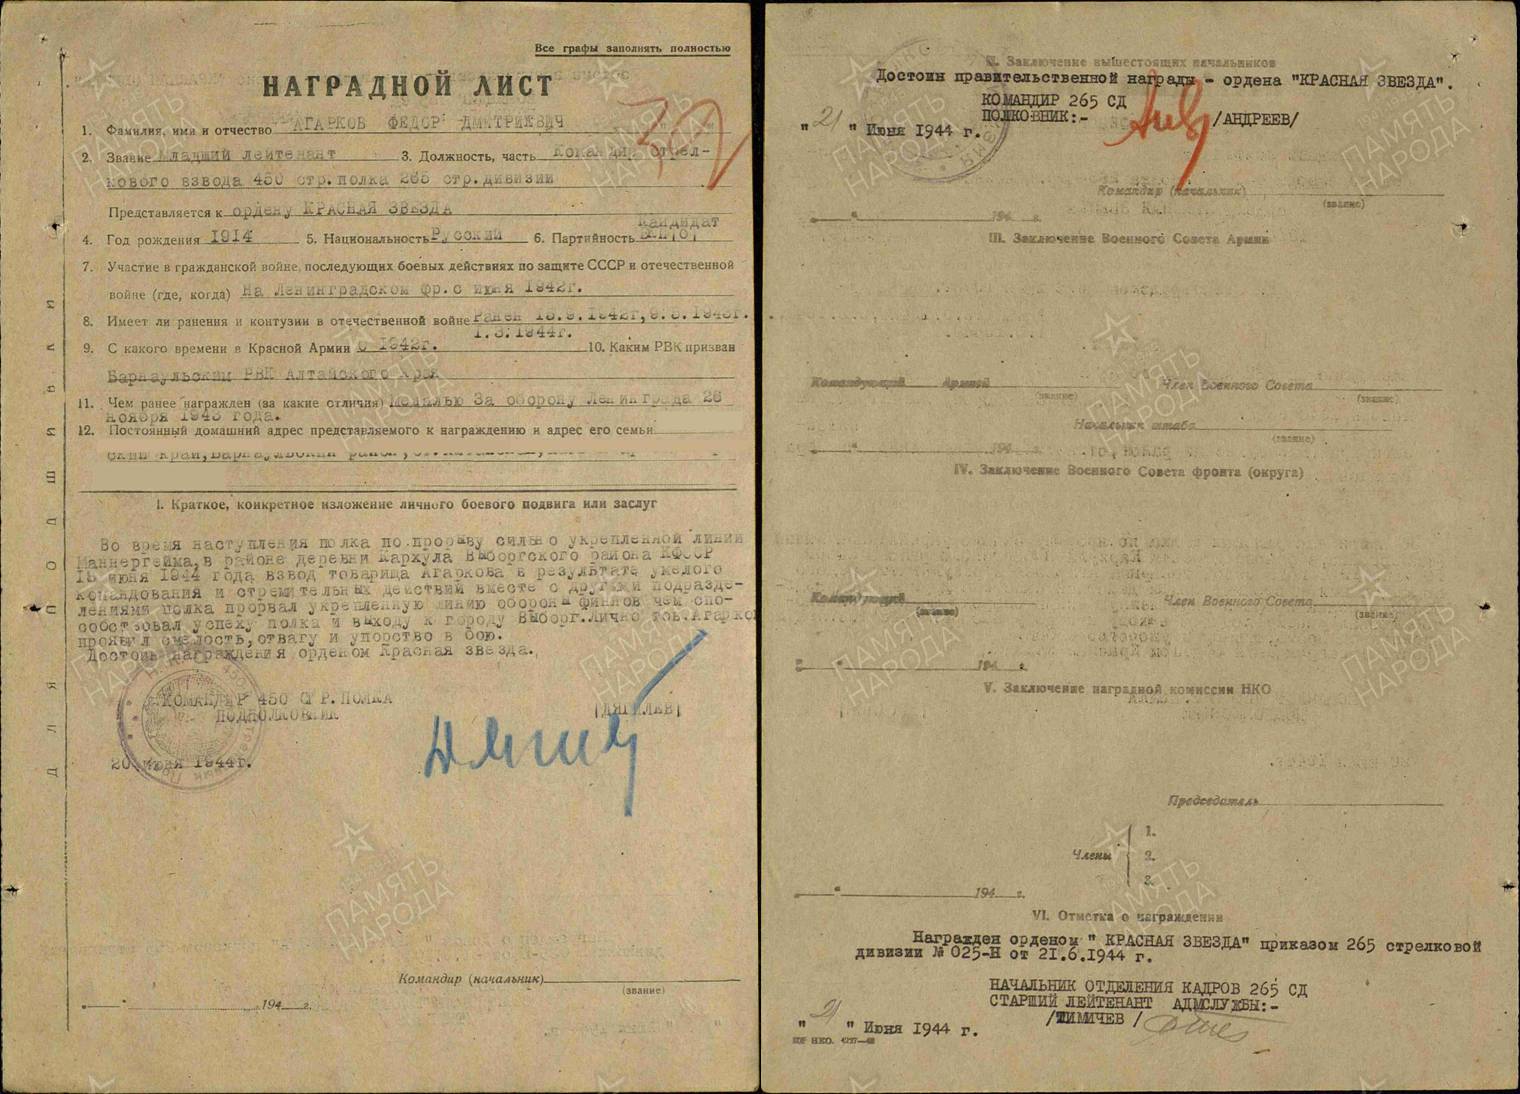 Все графы заполнять полностью
НАГРАДНОЙ ЛИСТ
1. Фамилия, имя и отчество АГАРКОВ ФЕДОР ДМИТРИЕВИЧ
2. Звание Младший лейтенант 3. Должность, часть Командир стрел-
кового взвода 450 стр.полка 265 стр.дивизии
Представляется к ордену КРАСНАЯ ЗВЕЗДА
Кандидат
4. Год рождения 1914 5. Национальность Русский 6. Партийность ВКП(б)
7. Участие в гражданской войне, последующих боевых действиях по защите СССР и отечественной
войне (где, когда) На Ленинградском фр.с июня 1942г.
8. Имеет ли ранения и контузии в отечественной войне Ранен
1.3.1944г.
9. С какого времени в Красной Армии с 1942г. 10. Каким РВК призван
Барнаульским РВК Алтайского Края
11. Чем ранее награжден (за какие отличия) Медалью За оборону Ленинграда 26
ноября 1943 года.
12. Постоянный домашний адрес представляемого к награждению и адрес его семьи
ский край, Барнаульский район,
I. Краткое, конкретное изложение личного боевого подвига или заслуг
Во время наступления полка по прорыву сильно укрепленной линии
Маннергейма, в районе деревни Кархула Выборгского района КФССР
июня 1944 года взвод товарища Агаркова в результате умелого
командования и стремительных действий вместе с другими подразде-
лениями полка прорвал укрепленную линию обороны финнов чем спо-
собствовал успеху полка и выходу к городу Выборг.Лично тов.Агарков
проявил смелость, отвагу и упорство в бою.
Достоин награждения орденом Красная звезда.
КОМАНДИР 450 СТР.ПОЛКА
ПОДПОЛКОВНИК (ДЯГИЛЕВ)
20 июня 1944г.
Командир (начальник)
(звание)
" " 194 г.
II. Заключение вышестоящих начальников
Достоин правительственной награды - ордена "КРАСНАЯ ЗВЕЗДА".
КОМАНДИР 265 СД
ПОЛКОВНИК:- /АНДРЕЕВ/
" 21 " Июня 1944 г.
Командир (начальник)
(звание)
" " 194 г.
III. Заключение Военного Совета Армии
Командующий Армией Член Военного Совета
(звание) (звание)
Начальник штаба
(звание)
" " 194 г.
IV. Заключение Военного Совета фронта (округа)
Командующий Член Военного Совета
(звание) (звание)
" " 194 г.
V. Заключение наградной комиссии НКО
Председатель
1.
Члены 2.
3.
" " 194 г.
VI. Отметка о награждении
Награжден орденом " КРАСНАЯ ЗВЕЗДА" приказом 265 стрелковой
дивизии № 025-Н от 21.6.1944 г.
НАЧАЛЬНИК ОТДЕЛЕНИЯ КАДРОВ 265 СД
СТАРШИЙ ЛЕЙТЕНАНТ АДМСЛУЖБЫ:-
/ШИМИЧЕВ /
" 21 " Июня 1944 г.
ПАМЯТЬ НАРОДА